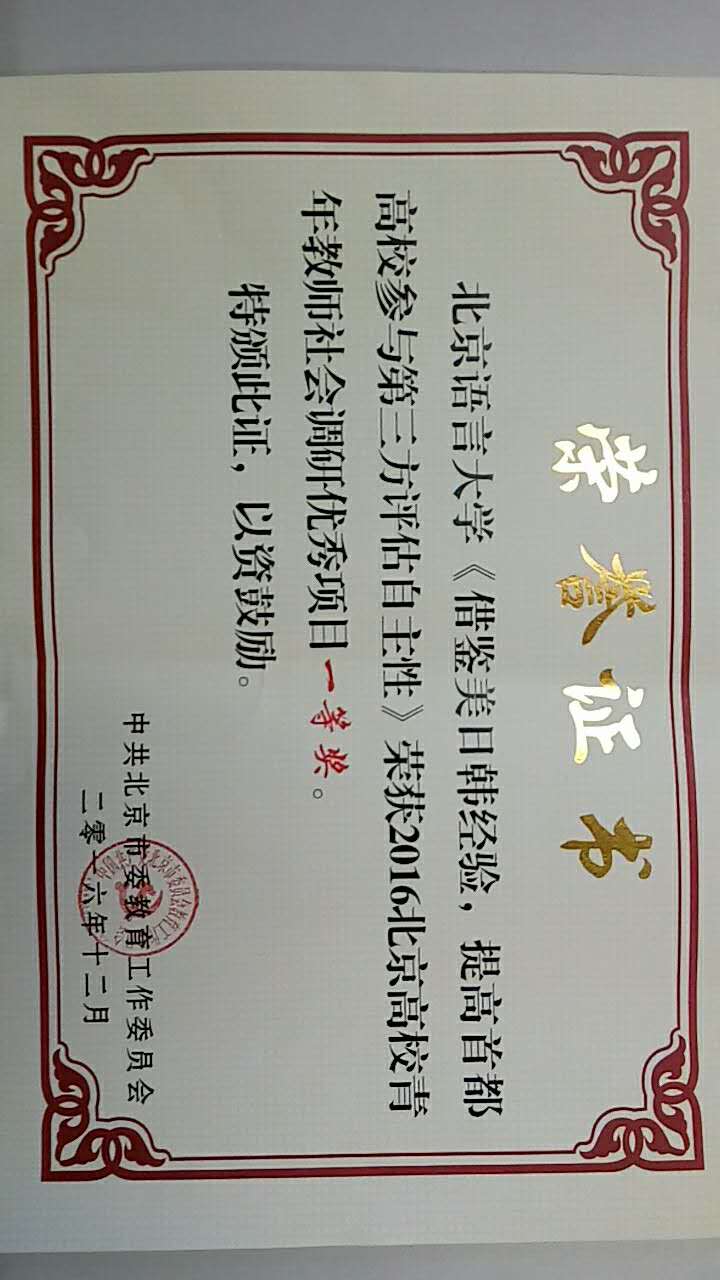 荣誉证书
北京语言大学《借鉴美日韩经验，提高首都
高校参与第三方评估自主性》荣获2016北京高校青
年教师社会调研优秀项目一等奖。
特颁此证，以资鼓励。
中共北京市委教育工作委员会
二零一六年十二月